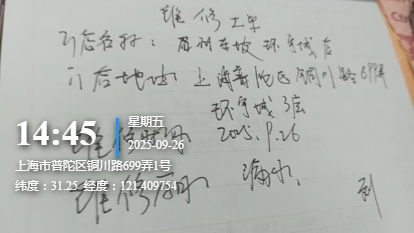 维修工单
门店名称：苏州东坡环宇城店
门店地址 上海普陀区铜川路699弄
环宇城3层
维修时间 2025.9.26
维修原因 漏水、
14:45
星期五
2025-09-26
上海市普陀区铜川路699弄1号
纬度：31.25 经度：121.409754